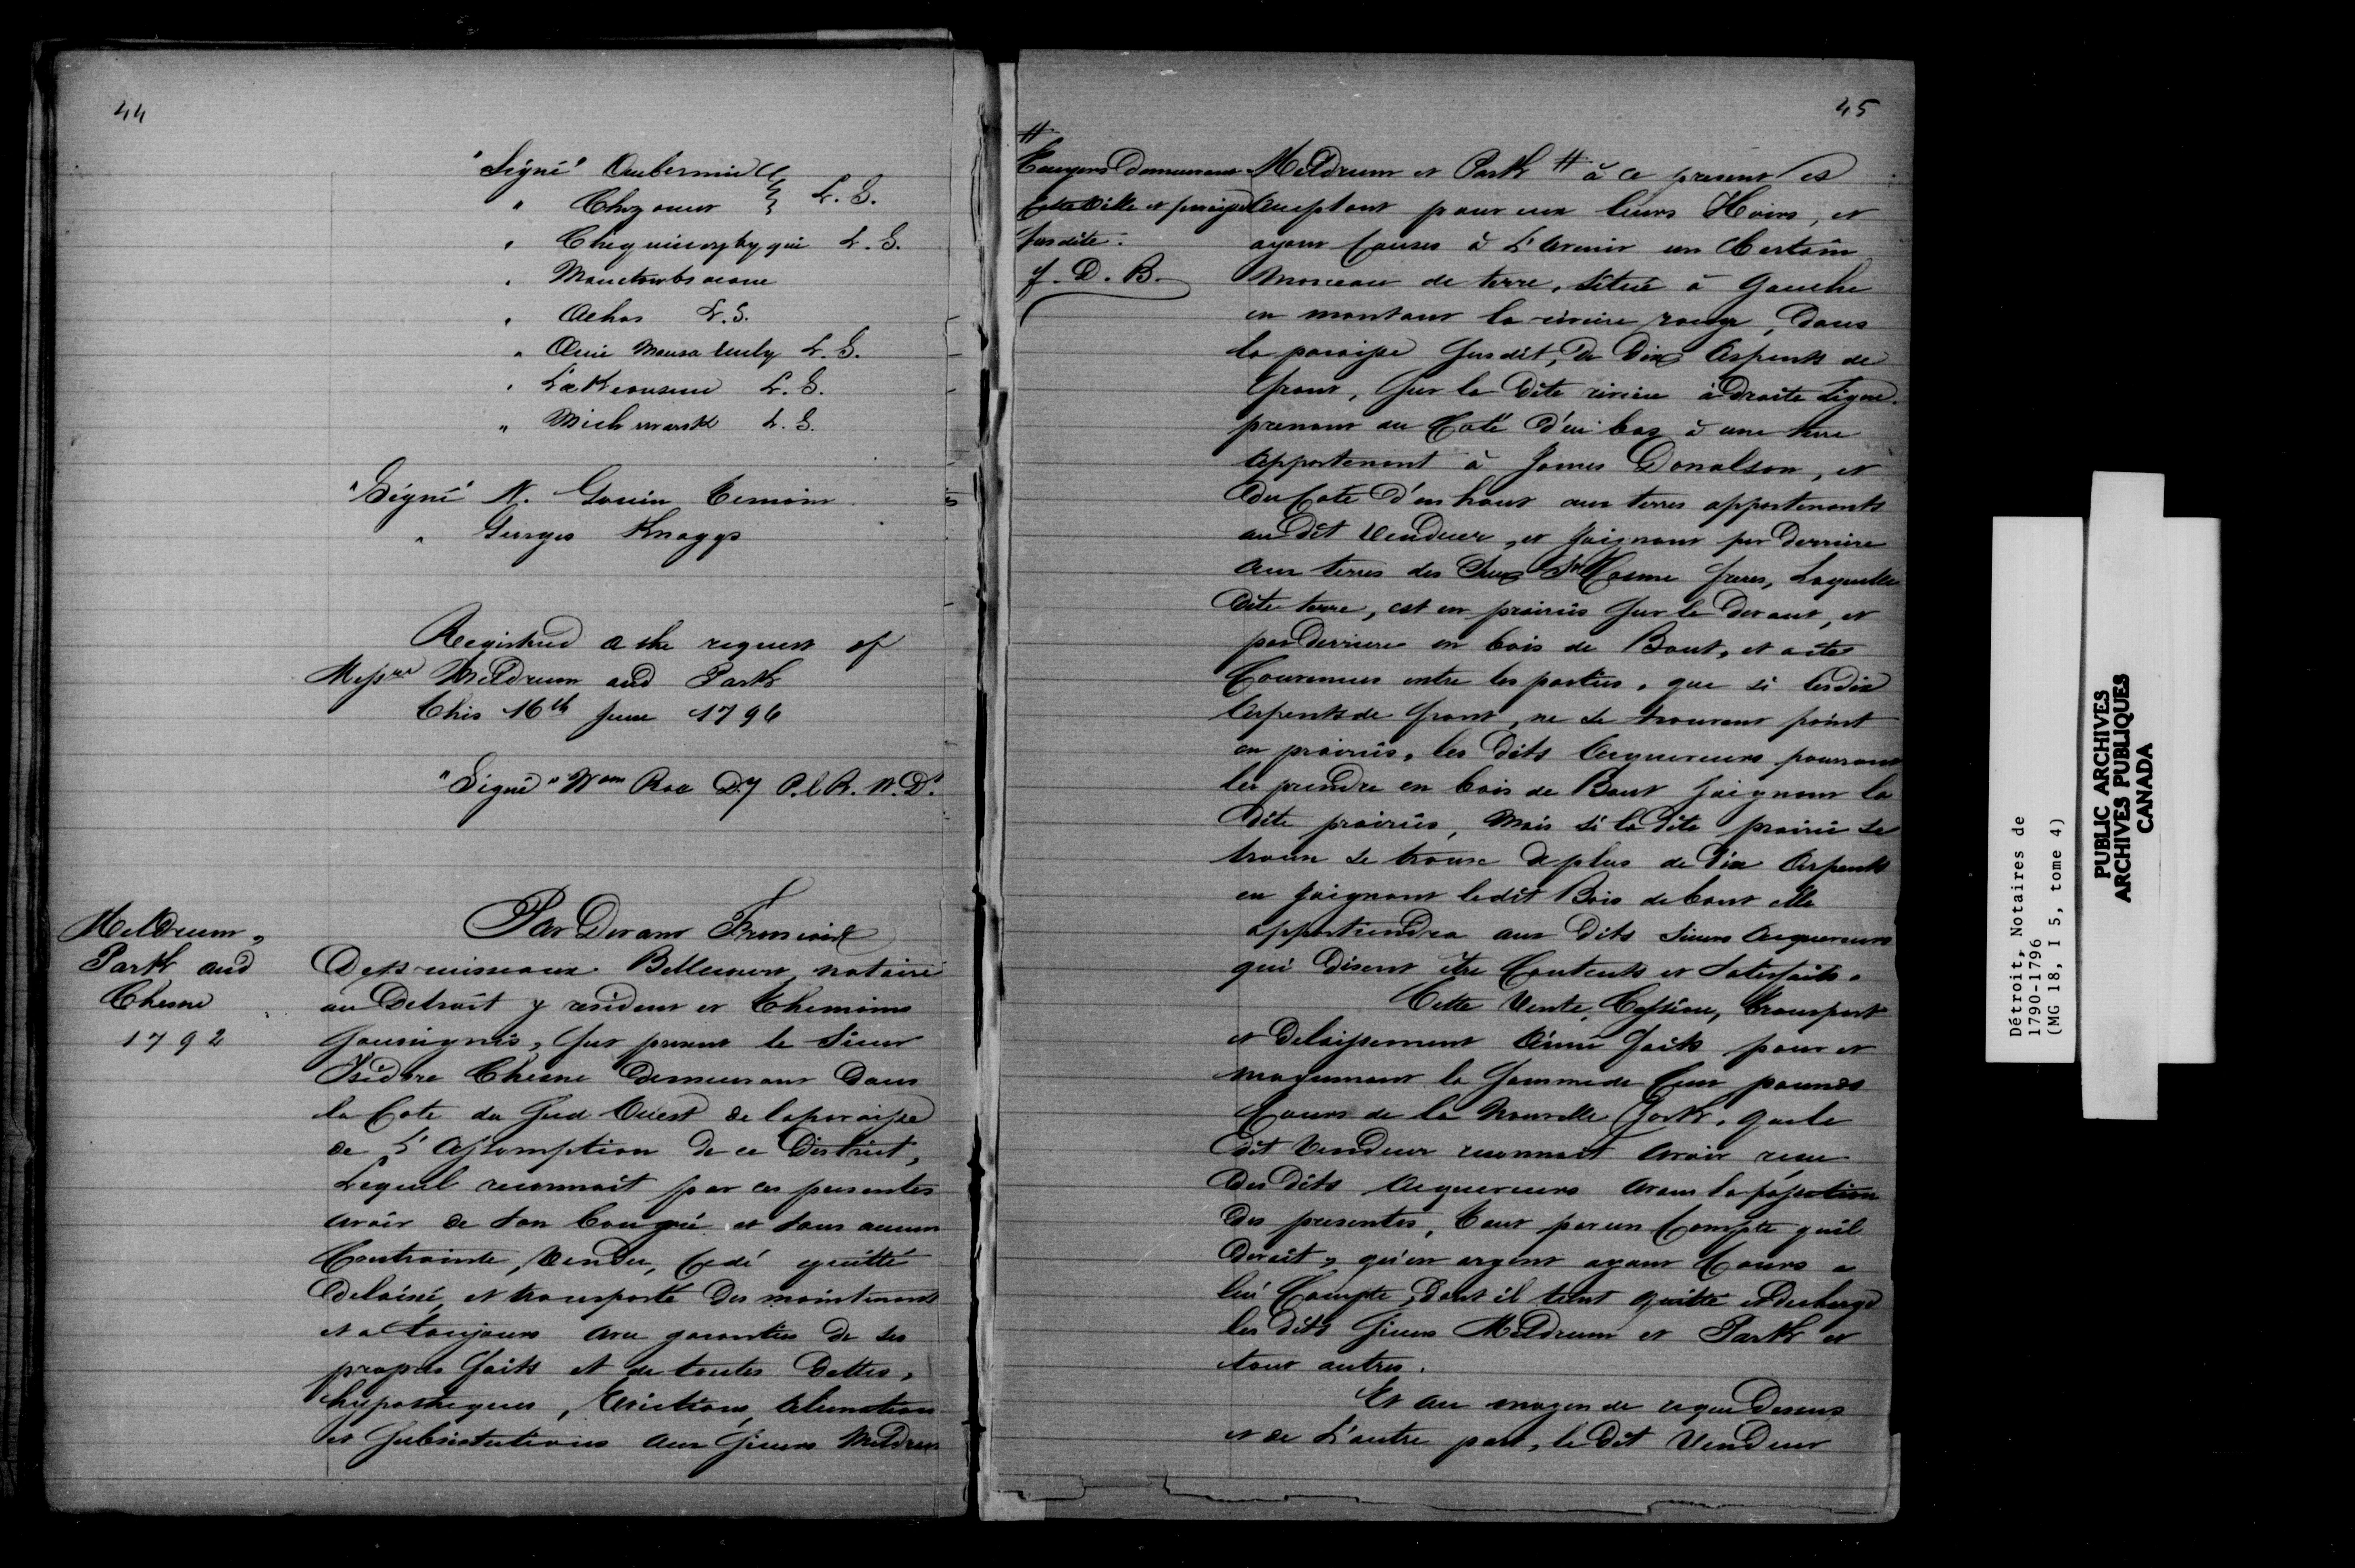 44
"Signé" Aubermid
" Chezoneur L. S.
" Cheguiiorybyguie L. S.
" Manetowbsacone
" Aehos L. S.
" Ouie Mousa L. S.
" Lakeouseme L. S.
" Michwarsk L. S.
"Signé" N. Gouin Temoin
" Georges Knaggs
Registred a the request of
Messrs Meldrum and Park
this 16th June 1796
"Signé" Wm Roe Dy P. l. R. W. D.
Meldrum,
Park and
Chesne
1792
Par Devant Francois
Desruisseaux Bellecourt, notaire
au Detroit y resident et themoins
soussignés, fut present le Sieur
Isidore Chesne demeurant dans
la Cote du Sud Ouest de la paroisse
de L'Assomption de ce District,
Lequel reconnait par ces presentes
avoir de son bon gré et sans aucune
Contrainte, Vendu, Cedé quitté
Delaissé, et transporté des maintenant
et a toujours avec garanties de ses
propres faits et de toutes Dettes,
hypotheques, Evictions, alienations
et Substitutions aux Sieurs Meldrum
45
#
Tanyers Demeurant
Cette Ville et paroisse
susdite.
f. D. B.
Meldrum et Park # à ce present et
acceptant pour eux leurs Hoirs, et
ayant Causes à L'avenir un Certain
morceau de terre, situé à gauche
en montant la riviere rouge, Dans
la paroisse susdit, De Dix Arpents de
front, sur la Dite riviere à droite ligne.
prenant au Coté d'en bas à une terre
appartenant à James Donalson, et
Du Coté d'en haut aux terres appartenants
au Dit Vendeur, et joignant par Derriere
aux terres des Sieurs St Cosme freres, Laquelle
Dite terre, est en prairies sur le Devant, et
par Derriere en bois de Bout, et a été
Convenues entre les parties, que si les dix
Arpents de front, ne se trouvent point
en prairies, les Dits Acquereurs pourront
les prendre en bois de Bout joignant la
Dite prairies, Mais si la Dite prairie se
trouve se trouve de plus de Dix Arpents
en joignant le dit Bois de bout elle
appartiendra aux Dits Sieurs Acquereurs
qui Disent être Contents et Satisfaits.
Cette Vente, Cession, transport
et Delaissement Ainsi faits pour et
moyennant la Somme de Cent pounds
Cours de la Nouvelle York, que le
Dit Vendeur reconnait avoir recu
des Dits Acquereurs avant la passation
Des presentes, tant par un Compte qu'il
Devait, qu'en argent ayant Cours a
lui Compte, Dont il tient quitte et decharge
les Dits Sieurs Meldrum et Park et
tout autres.
Et au moyen de ce que Dessus
et de L'autre part, le Dit Vendeur
Détroit, Notaires de
1790-1796
(MG 18, I 5, tome 4)
PUBLIC ARCHIVES
ARCHIVES PUBLIQUES
CANADA